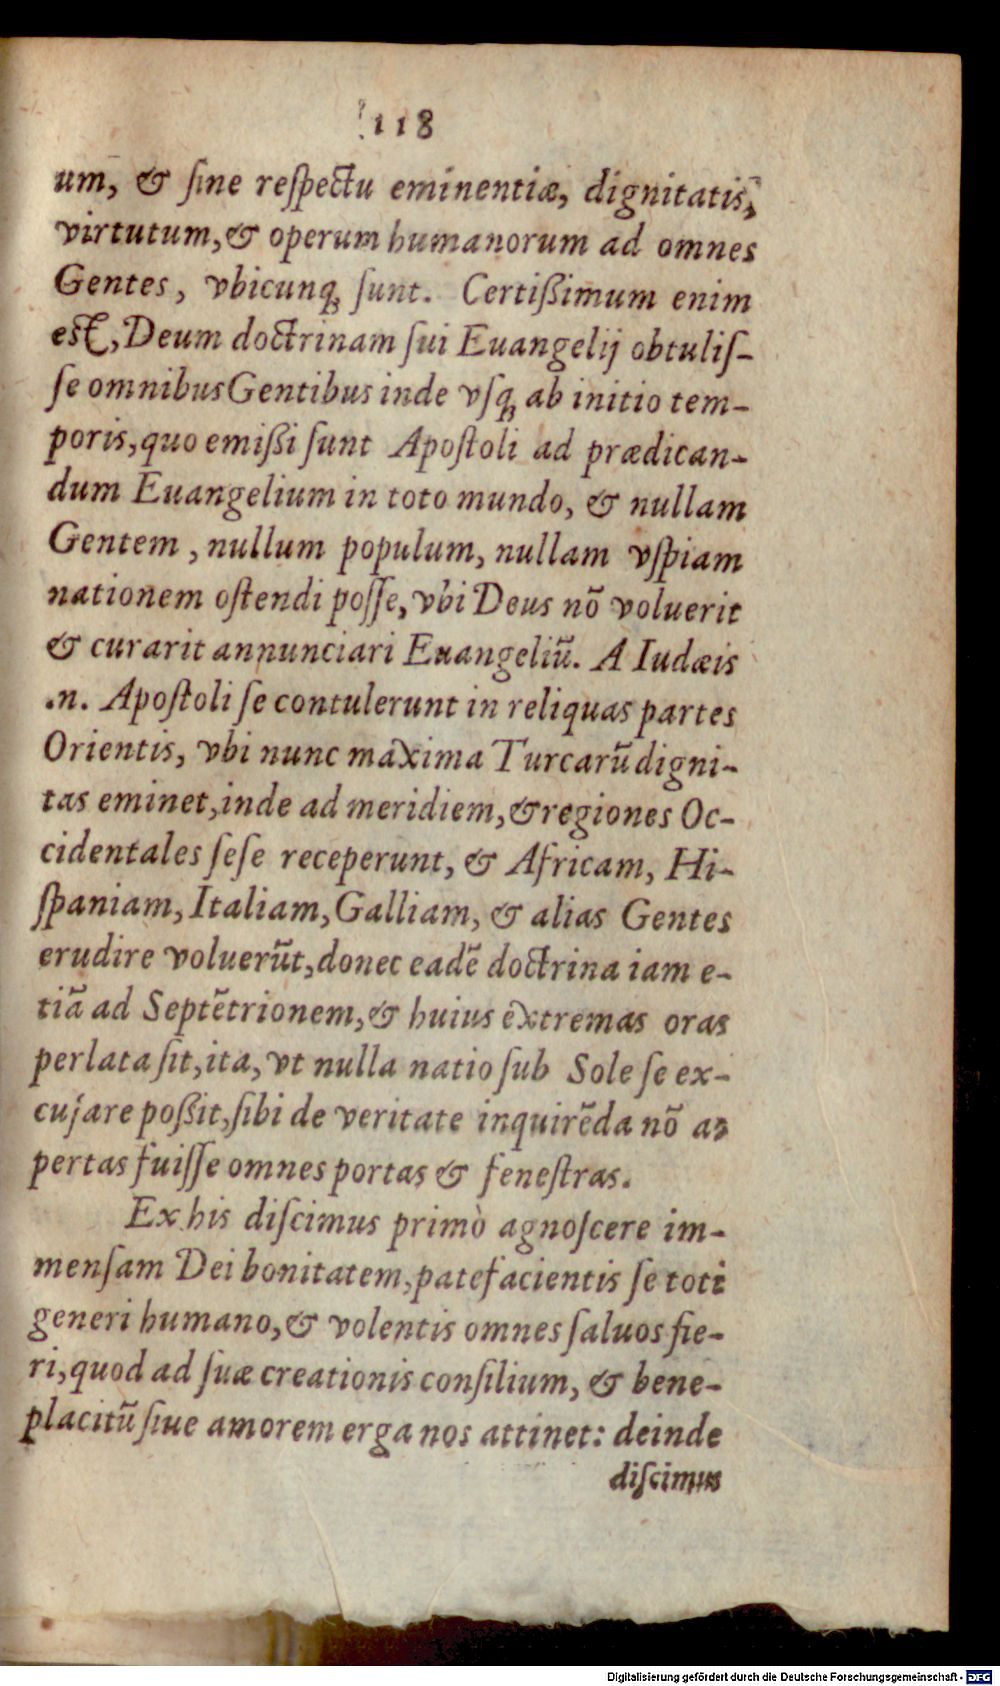 118
um, & ſine reſpectu eminentiæ, dignitatis,
virtutum, & operum humanorum ad omnes
Gentes, vbicunq; ſunt. Certißimum enim
est, Deum doctrinam ſui Euangelij obtuliſ-
ſe omnibus Gentibus inde vſq; ab initio tem-
poris, quo emißi ſunt Apoſtoli ad prædican-
dum Euangelium in toto mundo, & nullam
Gentem, nullum populum, nullam vſpiam
nationem oſtendi poſſe, vbi Deus nõ voluerit
& curarit annunciari Euangeliũ. A Iudæis
.n. Apoſtoli ſe contulerunt in reliquas partes
Orientis, vbi nunc maxima Turcarũ digni-
tas eminet, inde ad meridiem, & regiones Oc-
cidentales ſeſe receperunt, & Africam, Hi-
ſpaniam, Italiam, Galliam, & alias Gentes
erudire voluerũt, donec eadẽ doctrina iam e-
tiã ad Septẽtrionem, & huius extremas oras
perlata ſit, ita, vt nulla natio ſub Sole ſe ex-
cuſare poßit, ſibi de veritate inquirẽda nõ a-
pertas fuiſſe omnes portas & feneſtras.
Ex his diſcimus primò agnoſcere im-
menſam Dei bonitatem, patefacientis ſe toti
generi humano, & volentis omnes ſaluos fie-
ri, quod ad ſuæ creationis conſilium, & bene-
placitũ ſiue amorem erga nos attinet: deinde
diſcimus
Digitalisierung gefördert durch die Deutsche Forschungsgemeinschaft - DFG